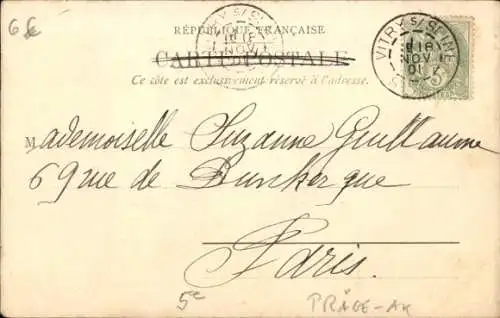 6€
RÉPUBLIQUE FRANÇAISE
CARTE POSTALE
Ce côté est exclusivement réservé à l'adresse.
VITRY S/ SEINE
18
NOV
01
Mademoiselle Suzanne Guillaume
69 rue de Dunkerque
Paris.
5e
PRÄGE-AK